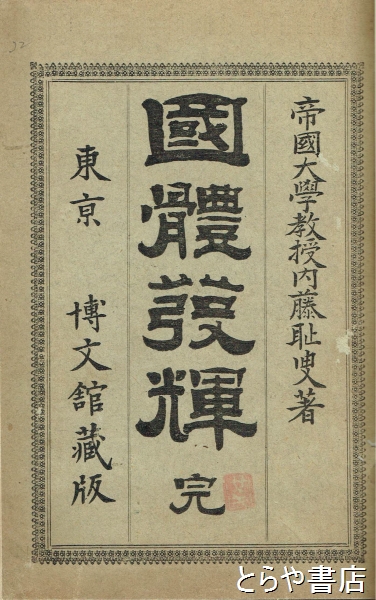 帝國大學教授内藤耻叟著
國體發輝 完
東京 博文館藏版
とらや書店